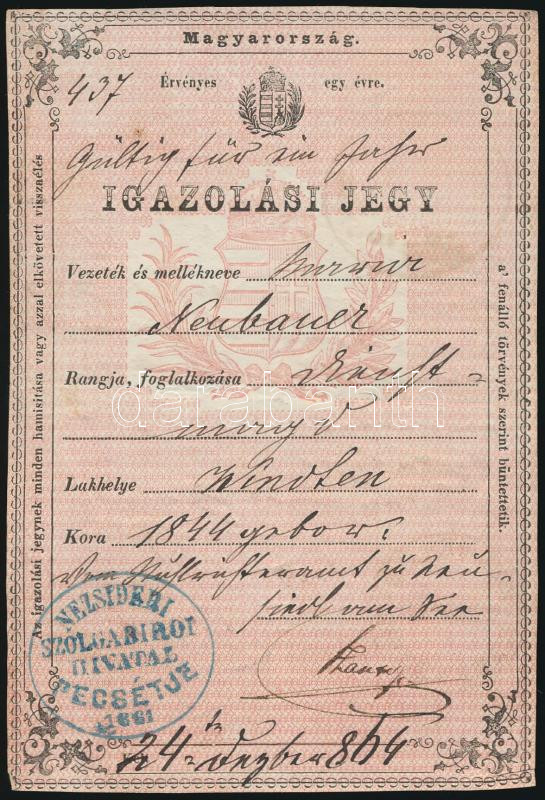 Magyarország.
437
Érvényes egy évre.
Gültig für ein Jahr
IGAZOLÁSI JEGY
Vezeték és mellékneve Maria
Neubauer
Rangja, foglalkozása Dienst-
magd
Lakhelye Winden
Kora 1844 gebor:
Vom Stuhlrichteramt zu Neu-
siedl am See
24 ten Dezber 864
NEZSIDERI
SZOLGABIROI
HIVATAL
PECSÉTJE
1861
Az igazolási jegynek minden hamisítása vagy azzal elkövetett visszaélés
a' fenálló törvények szerint büntettetik.
darabanth